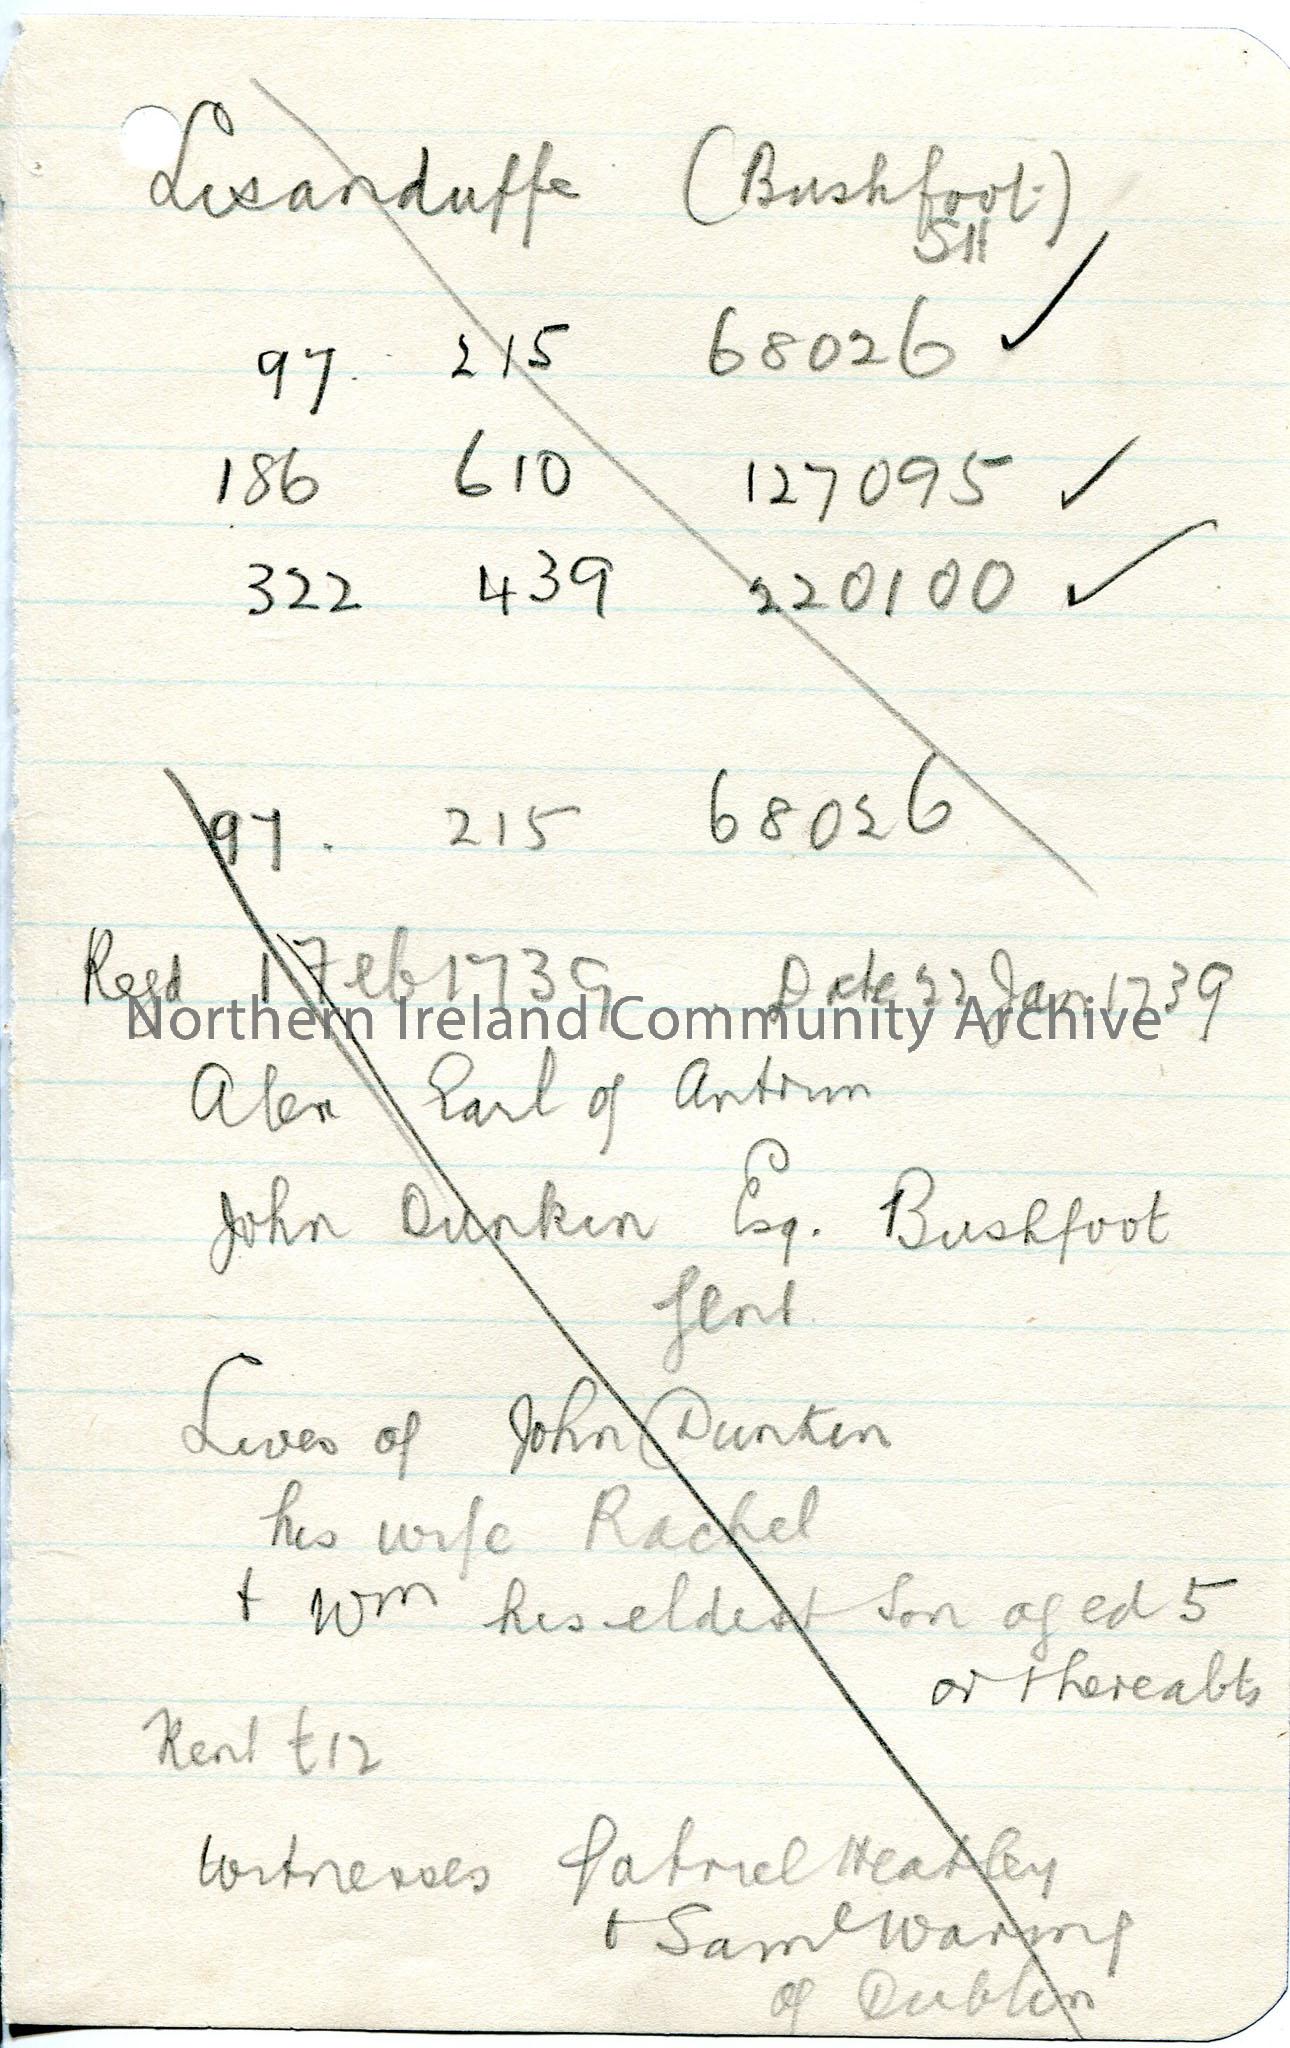 Lisanduffe (Bushfoot)
511
97. 215 68026 ✓
186 610 127095 ✓
322 439 220100 ✓
97. 215 68026
Regd 1 Feb 1739. Date 22 Jan. 1739
Northern Ireland Community Archive
Alex Earl of Antrim
John Dunkin Esq. Bushfoot
Gent.
Lives of John Dunkin
his wife Rachel
+ Wm his eldest Son aged 5
or thereabts
Rent £12
Witnesses Heatley
+ Saml Waring
of Dublin